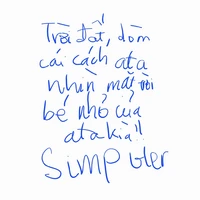 Trời đất, dòm
cái cách ata
nhìn mặt
bé nhỏ của
ata kìa!!
Simp